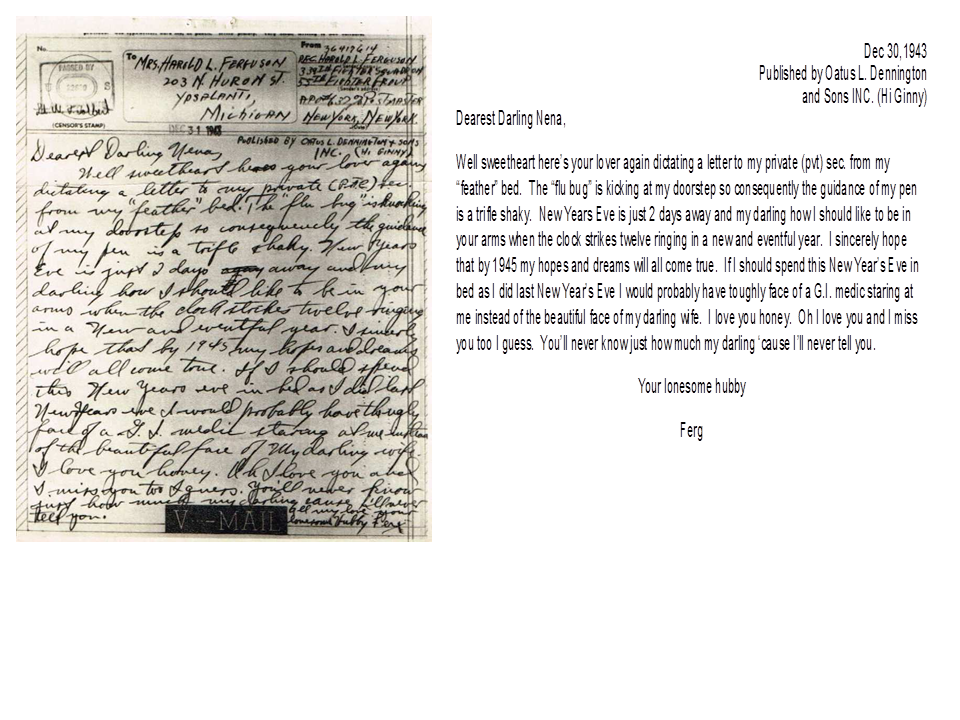 No.
PASSED BY
U S
(CENSOR'S STAMP)
To MRS. HAROLD L. FERGUSON
203 N. HURON ST.
YPSALANTI,
MICHIGAN
From 36419614
PFC HAROLD L. FERGUSON
FIGHTER SQUADRON
55TH FIGHTER GROUP
(Sender's address)
APO #637 % POSTMASTER
NEW YORK, NEW YORK.
DEC 31 1943
PUBLISHED BY OATUS L. DENNINGTON & SONS
INC. (HI GINNY)
Dearest Darling Nena,
Well sweetheart heres your lover again
dictating a letter to my private (Pvt) sec
from my "feather" bed. The "flu bug" is knocking
at my doorstep so consequently the guidance
of my pen is a trifle shaky. New Years
Eve is just 2 days away and my
darling how I should like to be in your
arms when the clock strikes twelve ringing
in a New and eventful year. I sincerly
hope that by 1945 my hopes and dreams
will all come true. If I should spend
this New Years eve in bed as I did last
New Years eve I would probably have the ugly
face of a G. I. medic staring at me instead
of the beautiful face of my darling wife.
I love you honey. Oh I love you and
I miss you too I guess. You'll never know
just how much my darling cause I'll never
tell you. all my love your
lonesome hubby Ferg
V - MAIL
Dec 30,1943
Published by Oatus L. Dennington
and Sons INC. (Hi Ginny)
Dearest Darling Nena,
Well sweetheart here's your lover again dictating a letter to my private (pvt) sec. from my
"feather" bed. The "flu bug" is kicking at my doorstep so consequently the guidance of my pen
is a trifle shaky. New Years Eve is just 2 days away and my darling how I should like to be in
your arms when the clock strikes twelve ringing in a new and eventful year. I sincerely hope
that by 1945 my hopes and dreams will all come true. If I should spend this New Year's Eve in
bed as I did last New Year's Eve I would probably have toughly face of a G.I. medic staring at
me instead of the beautiful face of my darling wife. I love you honey. Oh I love you and I miss
you too I guess. You'll never know just how much my darling 'cause I'll never tell you.
Your lonesome hubby
Ferg